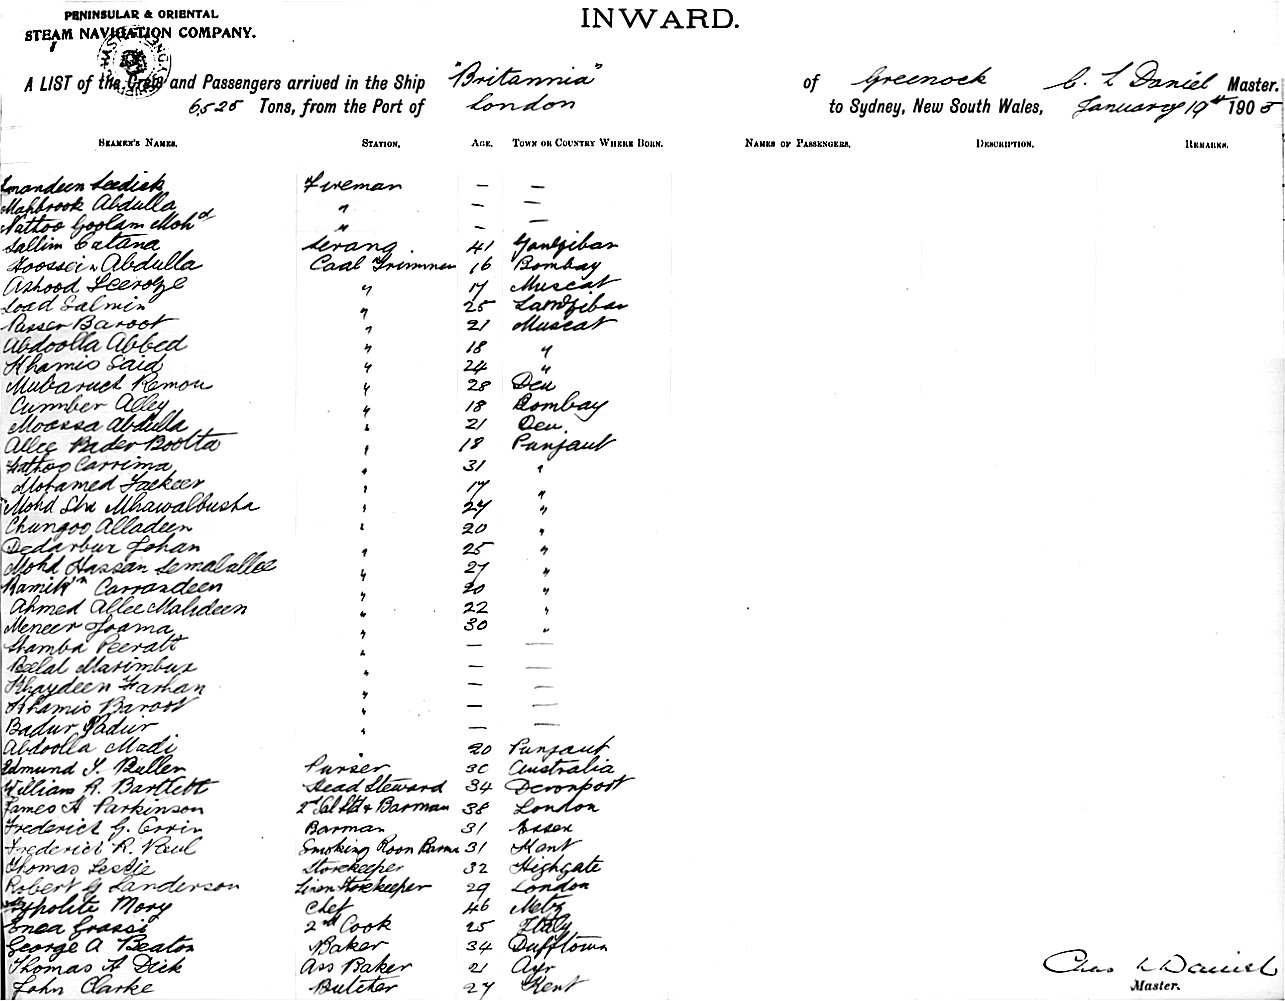 PENINSULAR & ORIENTAL
STEAM NAVIGATION COMPANY.
INWARD.
A LIST of the Crew and Passengers arrived in the Ship "Britannia" of Greenock C. L Daniel Master.
6,525 Tons, from the Port of London to Sydney, New South Wales, January 19th 1905
SEAMEN'S NAMES. STATION. AGE. TOWN OR COUNTRY WHERE BORN. NAMES OF PASSENGERS. DESCRIPTION. REMARKS.
Emandeen Seedick Fireman — —
Mahbrook Abdulla " — —
Nattoo Goolam Mohd " — —
Sallim Catana Serang 41 Zanzibar
Hoossein Abdulla Coal Trimmer 16 Bombay
Ashood Feeroze " 17 Muscat
Soad Salmin " 25 Zanzibar
Nasser Baroot " 21 Muscat
Abdoolla Abbed " 18 "
Khamis Said " 24 "
Mubaruck Remou " 28 Deu
Cumber Alley " 18 Bombay
Moossa Abdulla " 21 Deu.
Allee Bader Bootta " 18 Punjaut
Nathoo Carrima " 31 "
Mohamed Fackeer " 17 "
Mohd Sha Mhawalbusha " 27 "
Chungoo Alladeen " 20 "
Dedarbux Johan " 25 "
Mohd Hassan Semalallee " 27 "
Carrandeen " 20 "
Ahmed Allee Mahdeen " 22 "
Meneer Joama " 30 "
Shamba Peeratt " — —
Belal Marimbux " — —
Khaydeen Farhan " — —
Khamis Baroot " — —
Badur Nadur " — —
Abdoolla Madi " 20 Punjaut
Edmund J. Buller Purser 30 Australia
William R. Bartlett Head Steward 34 Devonport
James H Parkinson 2nd Sal Std & Barman 38 London
Frederick G. Orrin Barman 31 Essex
Frederick R. Paul Smoking Room Barman 31 Kent
Thomas Leslie Storekeeper 32 Highgate
Robert G Sanderson Linen Storekeeper 29 London
Hypolite Mory Chef 46 Metz
Enea Grassi 2nd Cook 25 Italy
George A Beaton Baker 34 Dufftown
Thomas A Dick Ass Baker 21 Ayr
John Clarke Butcher 27 Kent
Chas L Daniel
Master.